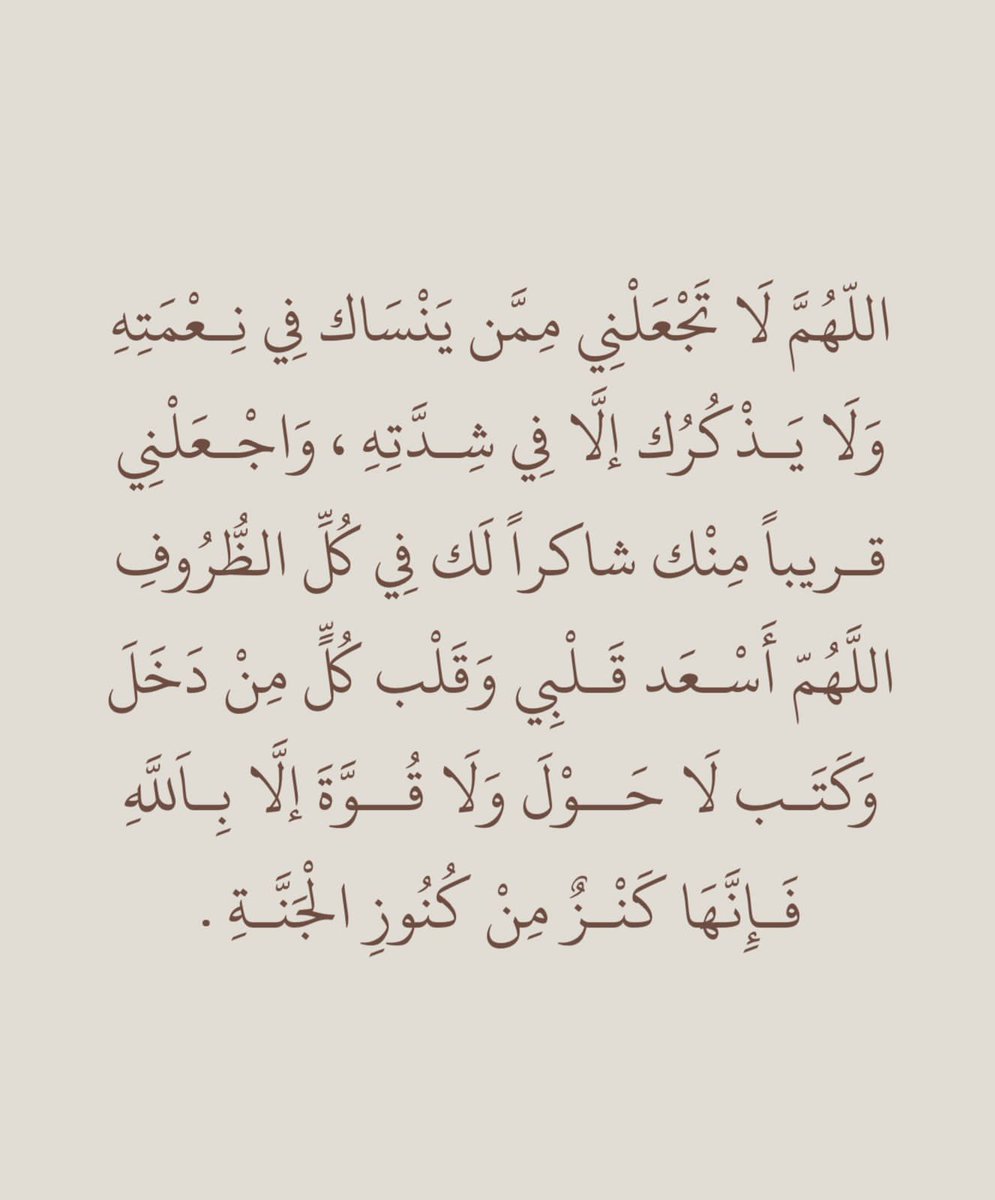 اللّهُمَّ لَا تَجْعَلْنِي مِمَّن يَنْسَاك فِي نِـعْمَتِهِ
وَلَا يَـذْكُرُك إلَّا فِي شِـدَّتِهِ ، وَاجْـعَلْنِي
قـريباً مِنْك شاكراً لَك فِي كُلِّ الظُّرُوفِ
اللَّهُمّ أَسْـعَد قَـلْبِي وَقَلْب كُلِّ مِنْ دَخَلَ
وَكَتَـب لَا حَـوْلَ وَلَا قُـوَّةَ إلَّا بِـاَللَّهِ
فَـإِنَّهَا كَنْـزٌ مِنْ كُنُوزِ الْجَنَّـةِ .